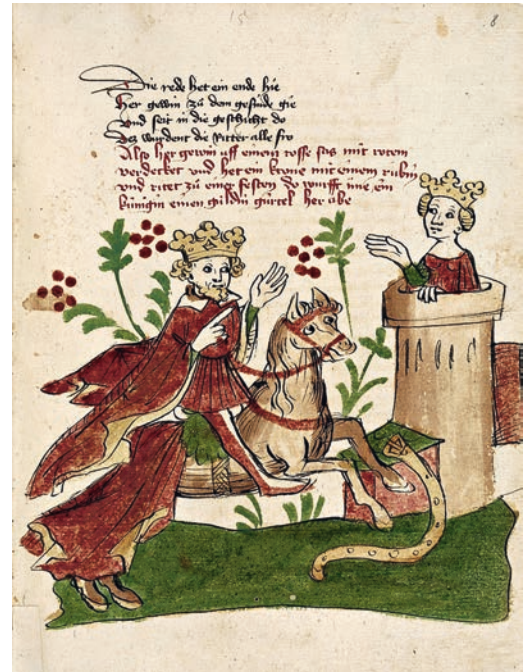 15
8
Die rede het ein ende hie
Her gewin zu dem gesinde gie
vnd seit in die geschicht do
Dez wurdent die Ritter alle fro
Also her gewin vff einem rosse sas mit rotem
verdecket vnd het ein krone mit einem rubin
vnd ritet zu einer festen do wurffe ime ein
künigin einen guldin gürtel her abe